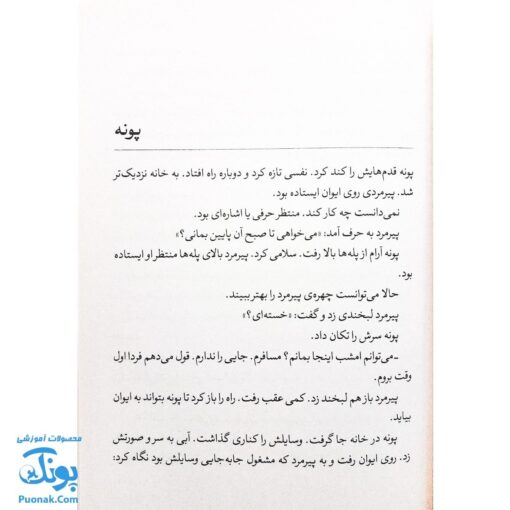 پونه
پونه قدم‌هایش را کند کرد. نفسی تازه کرد و دوباره راه افتاد. به خانه نزدیک‌تر
شد. پیرمردی روی ایوان ایستاده بود.
نمی‌دانست چه کار کند. منتظر حرفی یا اشاره‌ای بود.
پیرمرد به حرف آمد: «می‌خواهی تا صبح آن پایین بمانی؟»
پونه آرام از پله‌ها بالا رفت. سلامی کرد. پیرمرد بالای پله‌ها منتظر او ایستاده
بود.
حالا می‌توانست چهره‌ی پیرمرد را بهتر ببیند.
پیرمرد لبخندی زد و گفت: «خسته‌ای؟»
پونه سرش را تکان داد.
-می‌توانم امشب اینجا بمانم؟ مسافرم. جایی را ندارم. قول می‌دهم فردا اول
وقت بروم.
پیرمرد باز هم لبخند زد. کمی عقب رفت. راه را باز کرد تا پونه بتواند به ایوان
بیاید.
پونه در خانه جا گرفت. وسایلش را کناری گذاشت. آبی به سر و صورتش
زد. روی ایوان رفت و به پیرمرد که مشغول جابه‌جایی وسایلش بود نگاه کرد:
محصولات آموزشی
پونک
Puonak.Com